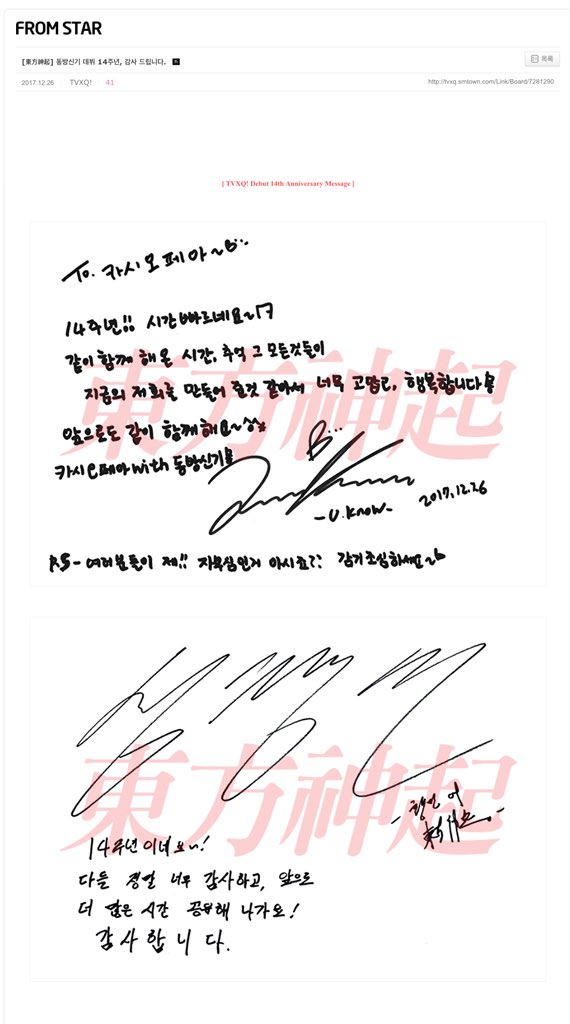 FROM STAR
[東方神起] 동방신기 데뷔 14주년, 감사 드립니다. N
목록
2017.12.26 TVXQ! 41
http://tvxq.smtown.com/Link/Board/7281290
[ TVXQ! Debut 14th Anniversary Message ]
To. 카시오페아~
14주년!! 시간 빠르네요~
같이 함께 해온 시간, 추억 그 모든것들이
지금의 저희를 만들어 준것 같아서 너무 고맙고, 행복합니다
앞으로도 같이 함께해요~
카시오페아 with 동방신기
東方神起
-U.Know-
2017.12.26
P.S - 여러분들이 제!! 자부심인거 아시죠?? 감기조심하세요~
東方神起
14주년이네요~!
다들 정말 너무 감사하고, 앞으로
더 많은 시간 공유해 나가요!
감사합니다.